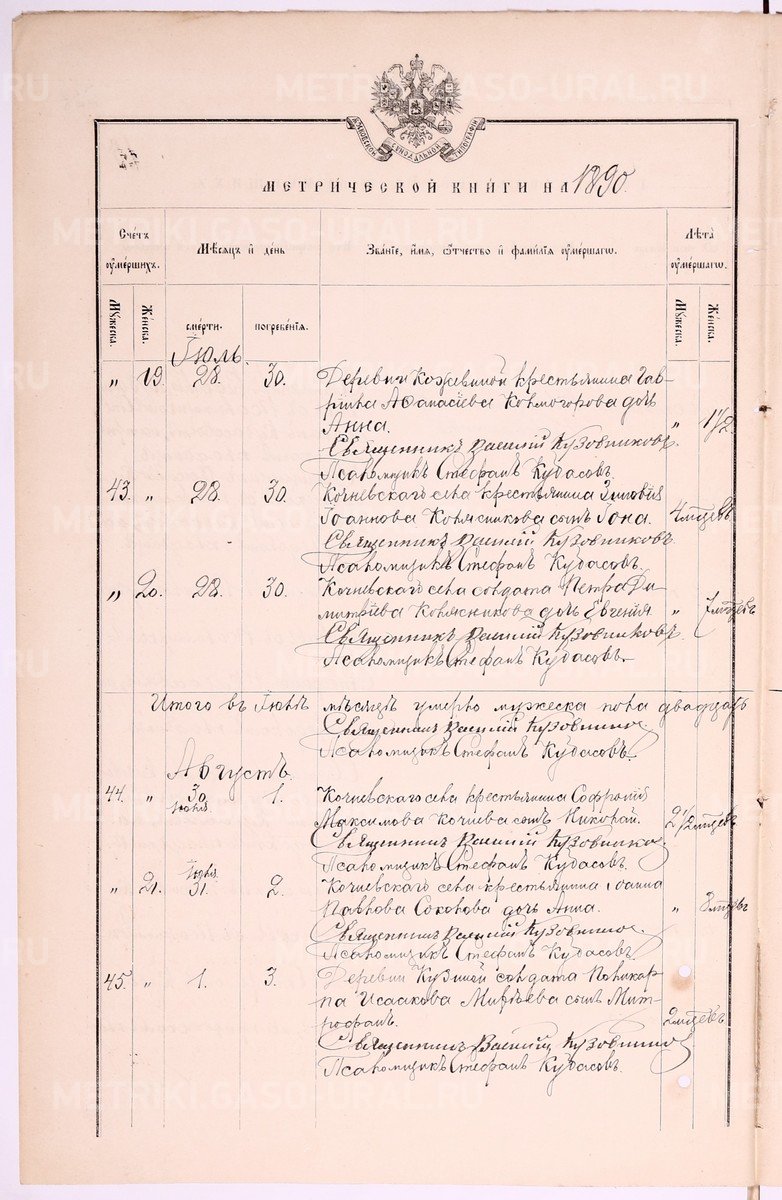 METRIKI.GASO-URAL.RU
МОСКОВСКОЙ СѴНОДАЛЬНОЙ ТИПОГРАФІИ
МЕТРИЧЕСКОЙ КНИГИ НА 1890.
Счетъ умершихъ.
Мѣсяцъ и день
Званіе, имя, отчество и фамилія умершаго.
Лѣта умершаго.
Мужеска.
Женска.
смерти.
погребенія.
Мужеска.
Женска.
Іюль.
„ 19. 28. 30. Деревни Кожевиной крестьянина Гав-
ріила Аѳанасіева Колмогорова дочь
Анна. „ 1 1/2
Священникъ Василій Кузовниковъ.
Псаломщикъ Стефанъ Кудасовъ.
43. „ 28. 30. Кочневскаго села крестьянина Зиновія
Іоаннова Колясникова сынъ Іона. 4 мѣсцевъ
Священникъ Василій Кузовниковъ.
Псаломщикъ Стефанъ Кудасовъ.
„ 20. 28. 30. Кочневскаго села солдата Петра Ди-
митріева Колясникова дочь Евгенія „ 7 мѣсцевъ
Священникъ Василій Кузовниковъ
Псаломщикъ Стефанъ Кудасовъ.
Итого въ Іюлѣ мѣсяцѣ умерло мужеска пола двадцать
Священникъ Василій Кузовников
Псаломщикъ Стефанъ Кудасовъ.
Августъ.
44. „ 30 Іюля. 1. Кочневскаго села крестьянина Софронія
Максимова Кочнева сынъ Николай. 2 1/2 мѣсцевъ
Священникъ Василій Кузовников
Псаломщикъ Стефанъ Кудасовъ.
„ 21. Іюля 31. 2. Кочневскаго села крестьянина Іоанна
Павлова Соколова дочь Анна. „ мѣсцевъ
Священникъ Василій Кузовников
Псаломщикъ Стефанъ Кудасовъ.
45. „ 1. 3. Деревни Кузиной солдата Поликар-
па Исаакова сынъ Мит-
рофанъ. 2 мѣсцевъ
Священникъ Василій Кузовников
Псаломщикъ Стефанъ Кудасовъ.
METRIKI.GASO-URAL.RU